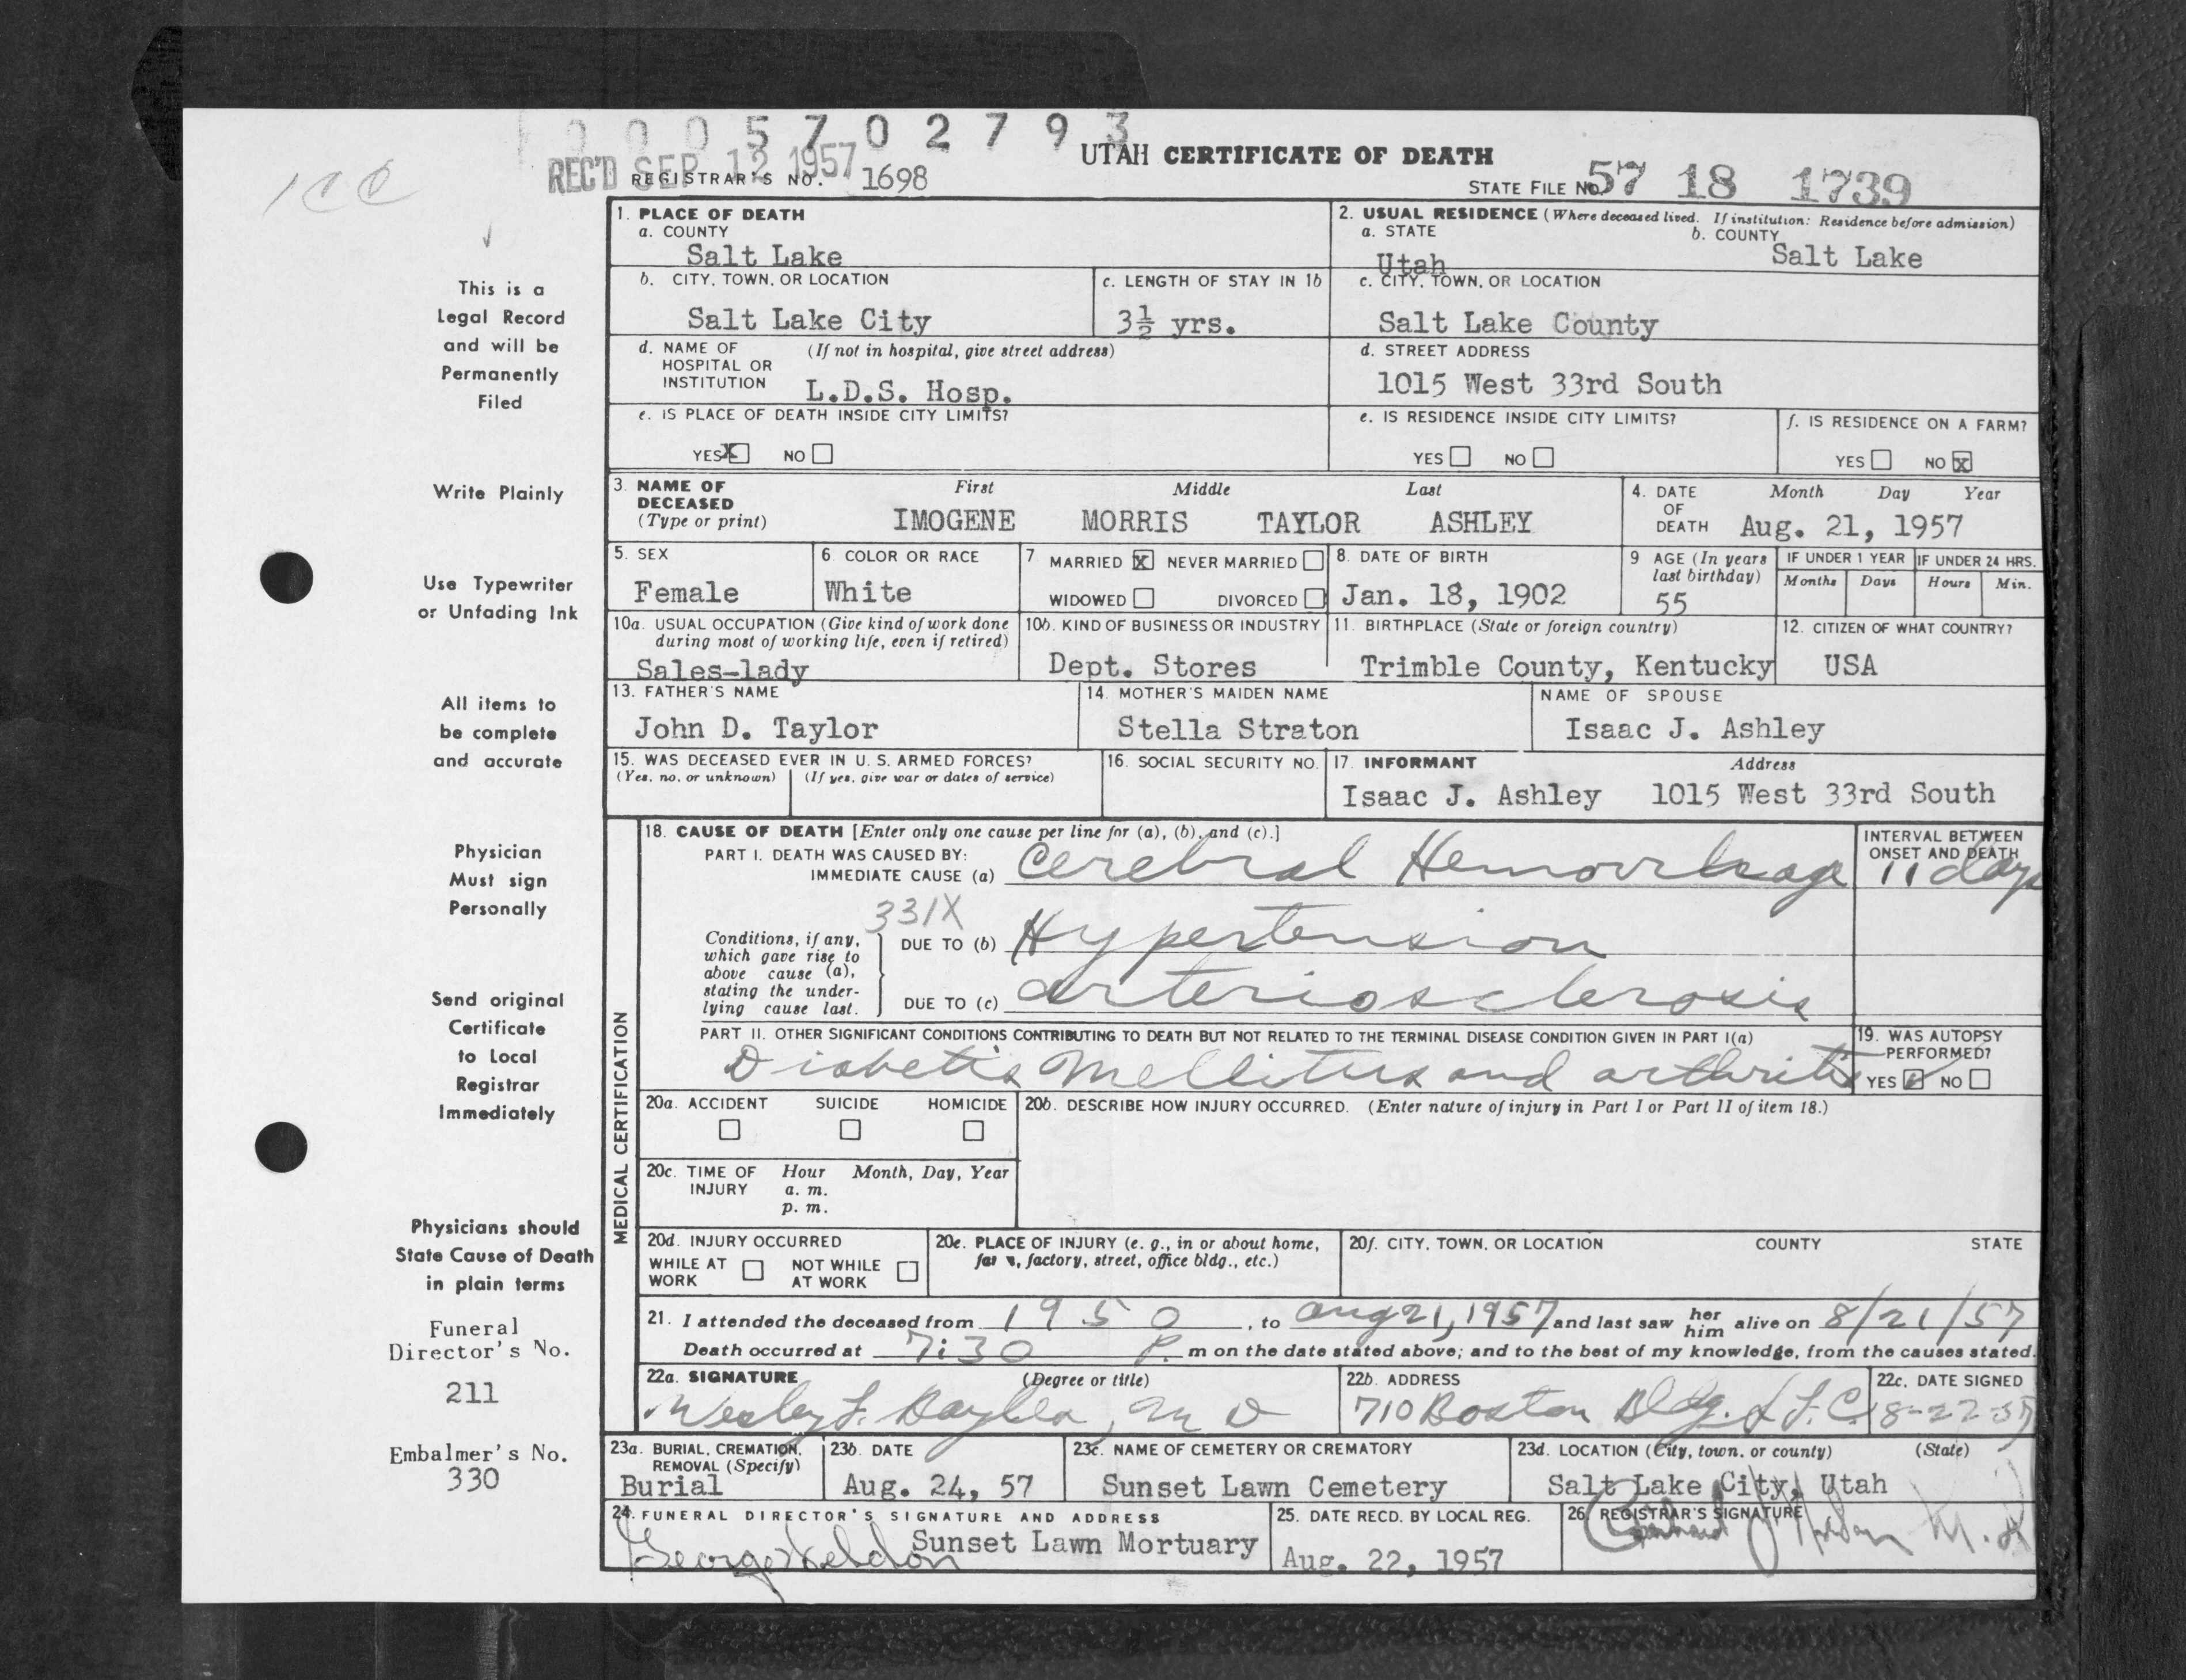 0 0 0 5 7 0 2 7 9 3
REC'D SEP 12 1957
UTAH CERTIFICATE OF DEATH
REGISTRAR'S NO. 1698
STATE FILE NO. 57 18 1739
1. PLACE OF DEATH
a. COUNTY
Salt Lake
2. USUAL RESIDENCE (Where deceased lived. If institution: Residence before admission)
a. STATE
Utah
b. COUNTY
Salt Lake
b. CITY, TOWN, OR LOCATION
Salt Lake City
c. LENGTH OF STAY IN 1b
3½ yrs.
c. CITY, TOWN, OR LOCATION
Salt Lake County
d. NAME OF HOSPITAL OR INSTITUTION (If not in hospital, give street address)
L.D.S. Hosp.
d. STREET ADDRESS
1015 West 33rd South
e. IS PLACE OF DEATH INSIDE CITY LIMITS?
YES X NO
e. IS RESIDENCE INSIDE CITY LIMITS?
YES NO
f. IS RESIDENCE ON A FARM?
YES NO X
3. NAME OF DECEASED (Type or print)
First Middle Last
IMOGENE MORRIS TAYLOR ASHLEY
4. DATE OF DEATH
Month Day Year
Aug. 21, 1957
5. SEX
Female
6. COLOR OR RACE
White
7. MARRIED X NEVER MARRIED
WIDOWED DIVORCED
8. DATE OF BIRTH
Jan. 18, 1902
9 AGE (In years last birthday)
55
IF UNDER 1 YEAR
Months Days
IF UNDER 24 HRS.
Hours Min.
10a. USUAL OCCUPATION (Give kind of work done during most of working life, even if retired)
Sales-lady
10b. KIND OF BUSINESS OR INDUSTRY
Dept. Stores
11. BIRTHPLACE (State or foreign country)
Trimble County, Kentucky
12. CITIZEN OF WHAT COUNTRY?
USA
13. FATHER'S NAME
John D. Taylor
14. MOTHER'S MAIDEN NAME
Stella Straton
NAME OF SPOUSE
Isaac J. Ashley
15. WAS DECEASED EVER IN U. S. ARMED FORCES?
(Yes, no, or unknown) (If yes, give war or dates of service)
16. SOCIAL SECURITY NO.
17. INFORMANT Address
Isaac J. Ashley 1015 West 33rd South
MEDICAL CERTIFICATION
18. CAUSE OF DEATH [Enter only one cause per line for (a), (b), and (c).]
PART I. DEATH WAS CAUSED BY:
IMMEDIATE CAUSE (a) Cerebral Hemorrhage
INTERVAL BETWEEN ONSET AND DEATH
11 days
331X
Conditions, if any, which gave rise to above cause (a), stating the underlying cause last.
DUE TO (b) Hypertension
DUE TO (c) arteriosclerosis
PART II. OTHER SIGNIFICANT CONDITIONS CONTRIBUTING TO DEATH BUT NOT RELATED TO THE TERMINAL DISEASE CONDITION GIVEN IN PART I(a)
Diabetis Mellitus and arthritis
19. WAS AUTOPSY PERFORMED?
YES NO
20a. ACCIDENT SUICIDE HOMICIDE
20b. DESCRIBE HOW INJURY OCCURRED. (Enter nature of injury in Part I or Part II of item 18.)
20c. TIME OF INJURY Hour Month, Day, Year
a. m.
p. m.
20d. INJURY OCCURRED
WHILE AT WORK NOT WHILE AT WORK
20e. PLACE OF INJURY (e. g., in or about home, farm, factory, street, office bldg., etc.)
20f. CITY, TOWN, OR LOCATION COUNTY STATE
21. I attended the deceased from 1950, to Aug 21, 1957 and last saw her him alive on 8/21/57
Death occurred at 7:30 P. m on the date stated above; and to the best of my knowledge, from the causes stated.
22a. SIGNATURE (Degree or title)
Wesley F. MD
22b. ADDRESS
710 Boston Bldg. S.L.C.
22c. DATE SIGNED
8-22-57
23a. BURIAL, CREMATION, REMOVAL (Specify)
Burial
23b. DATE
Aug. 24, 57
23c. NAME OF CEMETERY OR CREMATORY
Sunset Lawn Cemetery
23d. LOCATION (City, town, or county) (State)
Salt Lake City, Utah
24. FUNERAL DIRECTOR'S SIGNATURE AND ADDRESS
George Sunset Lawn Mortuary
25. DATE RECD. BY LOCAL REG.
Aug. 22, 1957
26. REGISTRAR'S SIGNATURE
M.D.
This is a
Legal Record
and will be
Permanently
Filed
Write Plainly
Use Typewriter
or Unfading Ink
All items to
be complete
and accurate
Physician
Must sign
Personally
Send original
Certificate
to Local
Registrar
Immediately
Physicians should
State Cause of Death
in plain terms
Funeral
Director's No.
211
Embalmer's No.
330